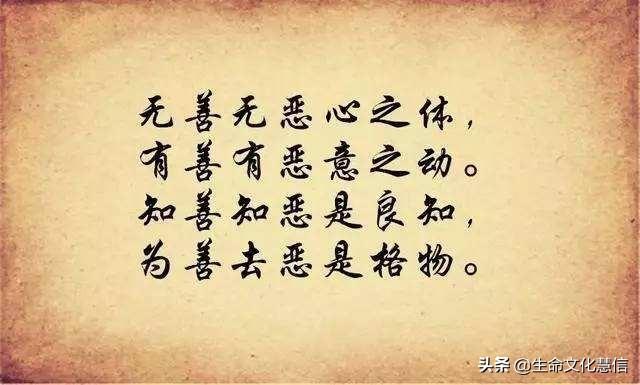 无善无恶心之体，
有善有恶意之动。
知善知恶是良知，
为善去恶是格物。
头条 @生命文化慧信